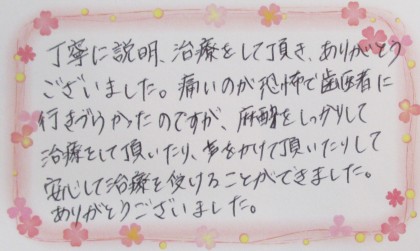 丁寧に説明、治療をして頂き、ありがとう
ございました。痛いのが恐怖で歯医者に
行きづらかったのですが、麻酔をしっかりして
治療をして頂いたり、声をかけて頂いたりして
安心して治療を受けることができました。
ありがとうございました。